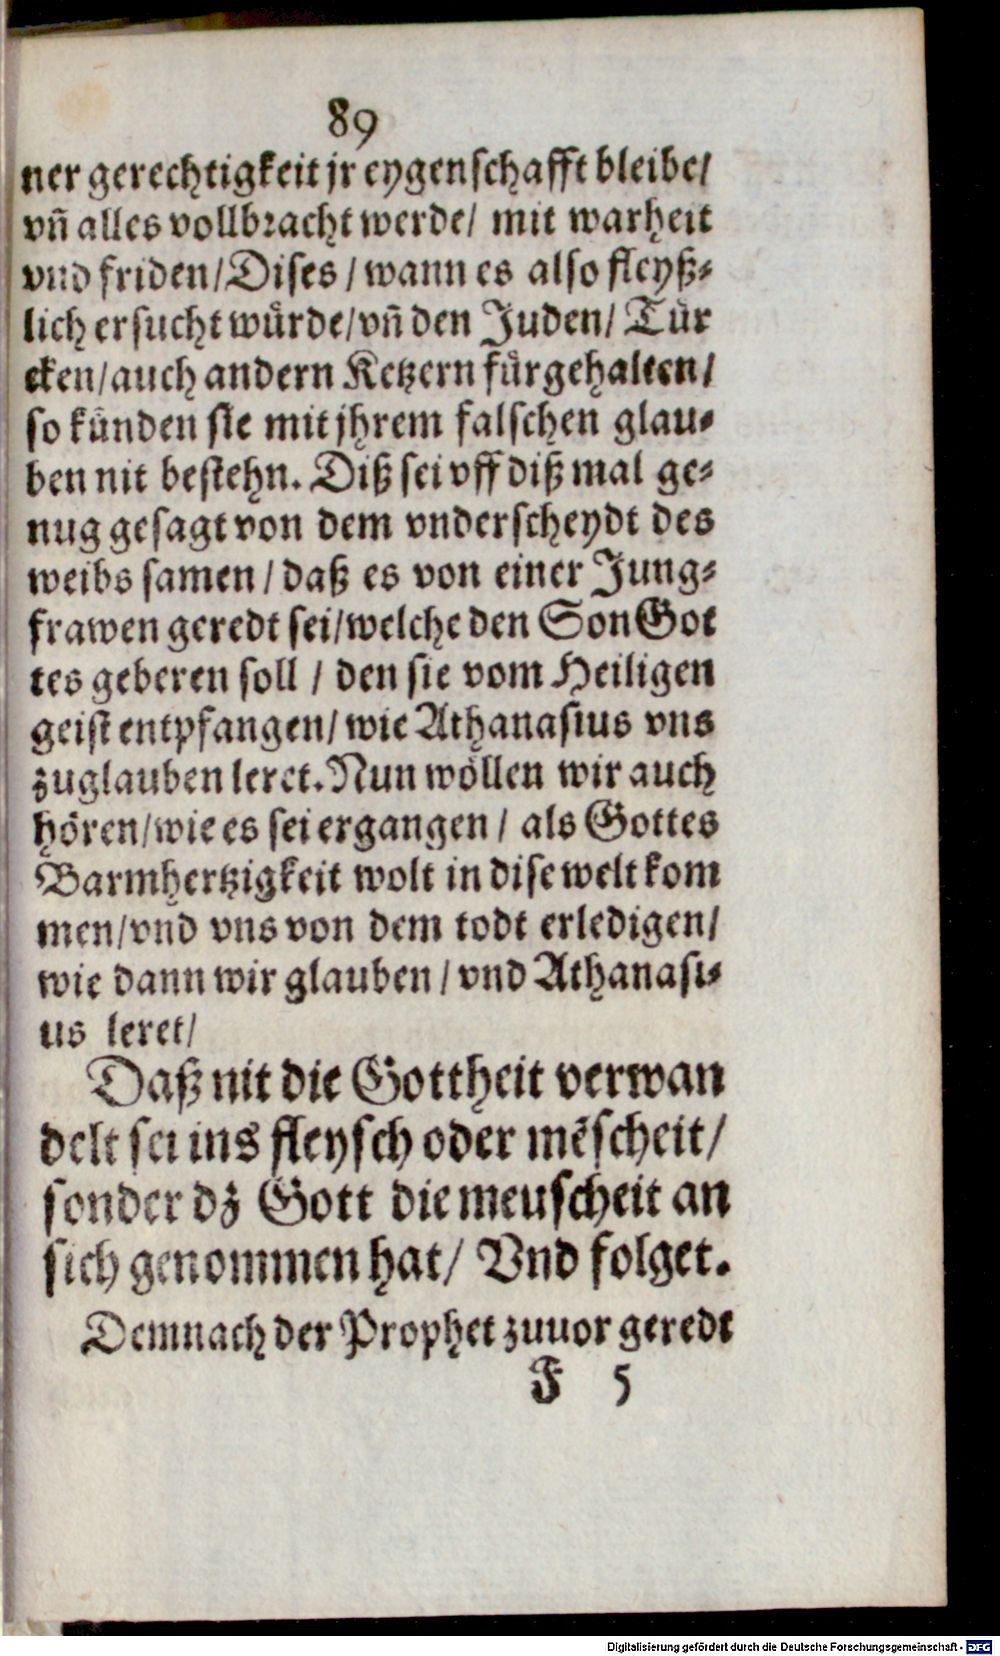 89
ner gerechtigkeit jr eygenschafft bleibe/
vñ alles vollbracht werde/ mit warheit
vnd friden/Dises/wann es also fleyß-
lich ersucht würde/vñ den Juden/Tür
cken/auch andern Ketzern fürgehalten/
so künden sie mit jhrem falschen glau-
ben nit bestehn. Diß sei vff diß mal ge-
nug gesagt von dem vnderscheydt des
weibs samen/daß es von einer Jung-
frawen geredt sei/welche den Son Got
tes geberen soll/den sie vom Heiligen
geist entpfangen/wie Athanasius vns
zuglauben leret. Nun wöllen wir auch
hören/wie es sei ergangen/als Gottes
Barmhertzigkeit wolt in dise welt kom
men/vnd vns von dem todt erledigen/
wie dann wir glauben/vnd Athanasi-
us leret/
Daß nit die Gottheit verwan
delt sei ins fleysch oder mẽscheit/
sonder dz Gott die menscheit an
sich genommen hat/ Vnd folget.
Demnach der Prophet zuuor geredt
F 5
Digitalisierung gefördert durch die Deutsche Forschungsgemeinschaft - DFG